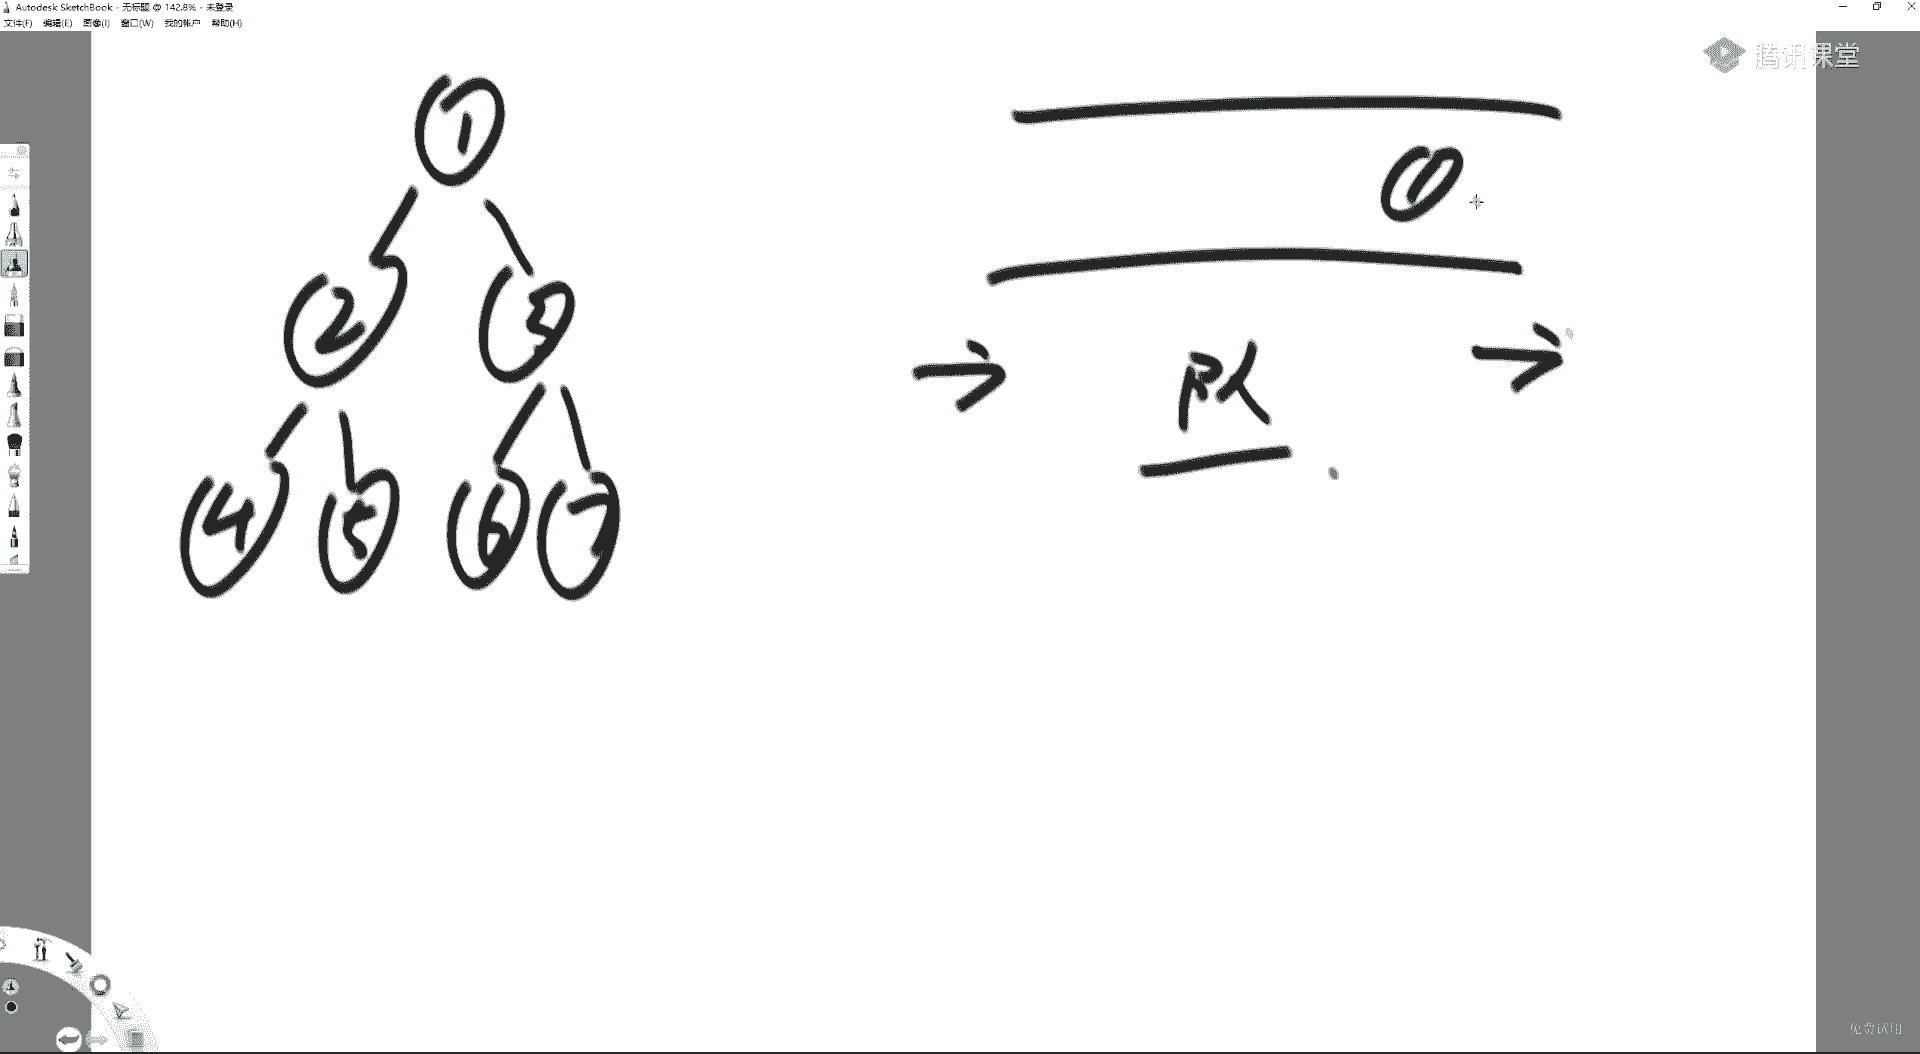 Autodesk SketchBook - 无标题 @ 142.8% - 未登录
文件(F) 编辑(E) 图像(I) 窗口(W) 我的帐户 帮助(H)
腾讯课堂
1
1
2 3
队
4 5 6 7
免费试用